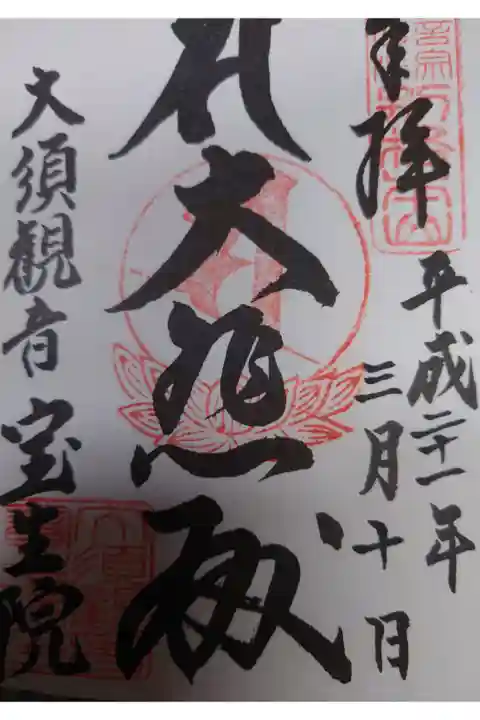 奉拝
平成二十一年
三月十日
大悲殿
大須觀音
宝生院